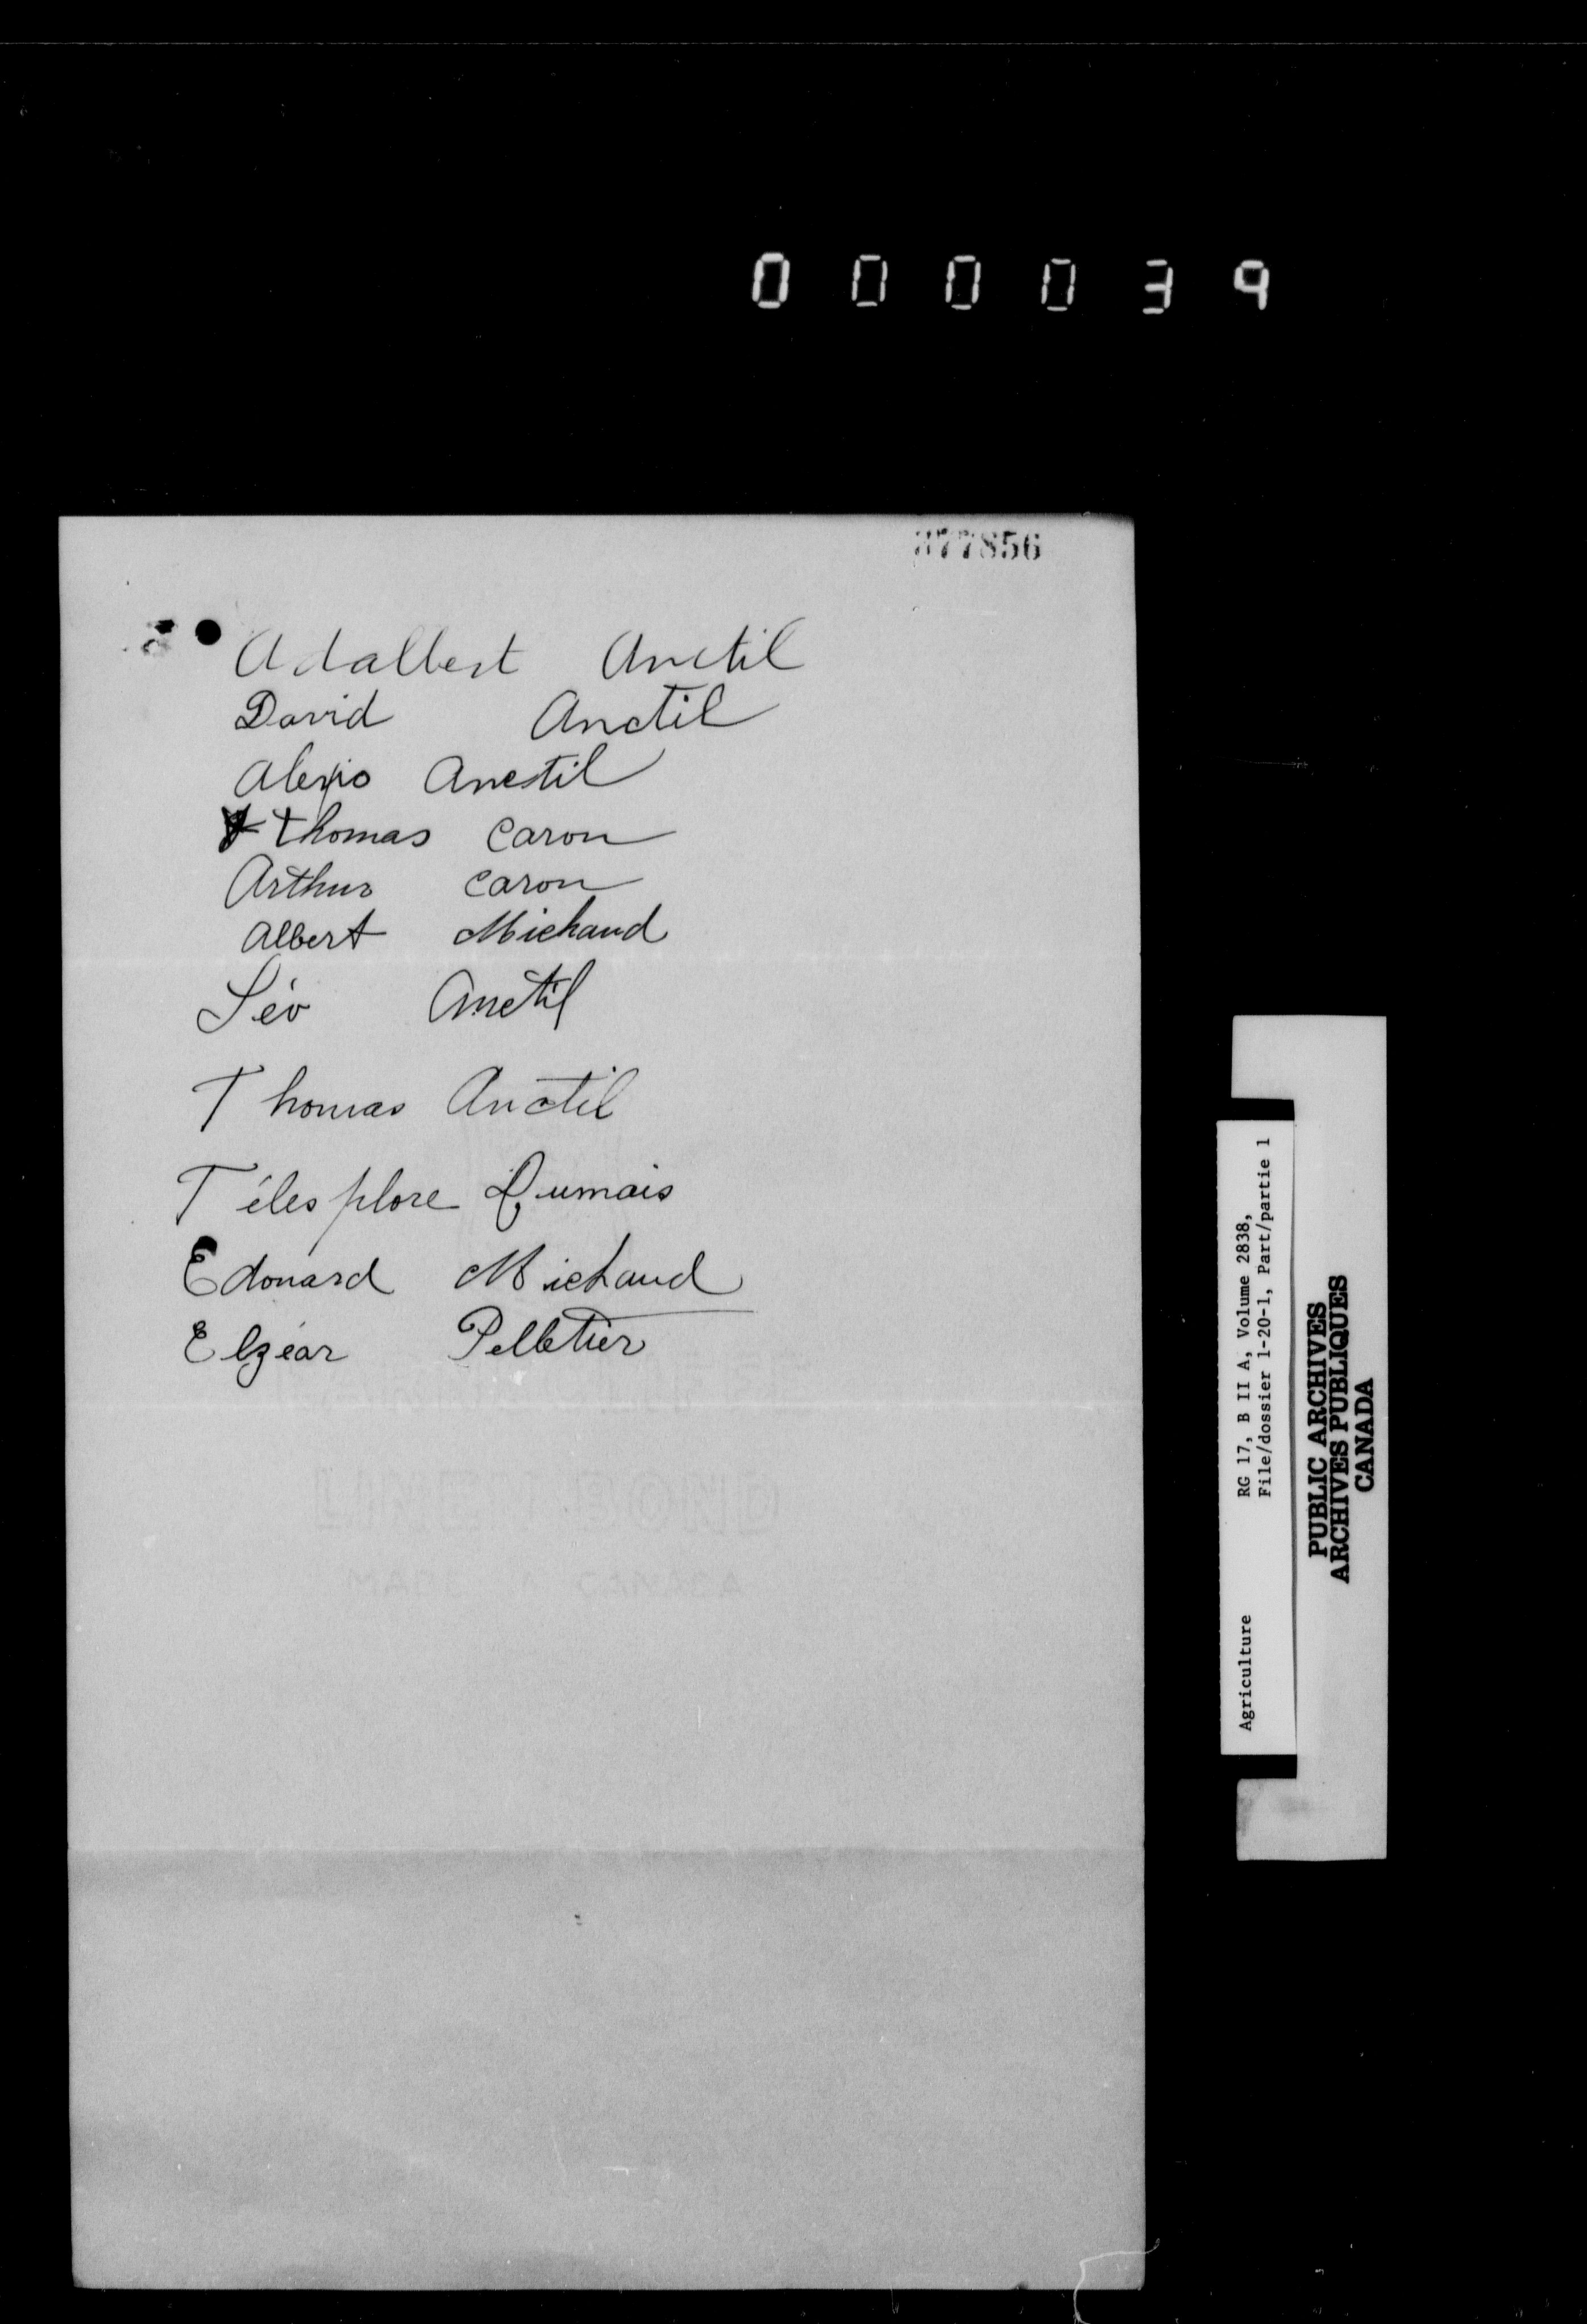 000039
377856
Adalbert Anctil
David Anctil
Alexis Anctil
Thomas Caron
Arthur Caron
Albert Michaud
Léo Anctil
Thomas Anctil
Télesphore Dumais
Edouard Michaud
Elzéar Pelletier
Agriculture RG 17, B II A, Volume 2838,
File/dossier 1-20-1, Part/partie 1
PUBLIC ARCHIVES
ARCHIVES PUBLIQUES
CANADA